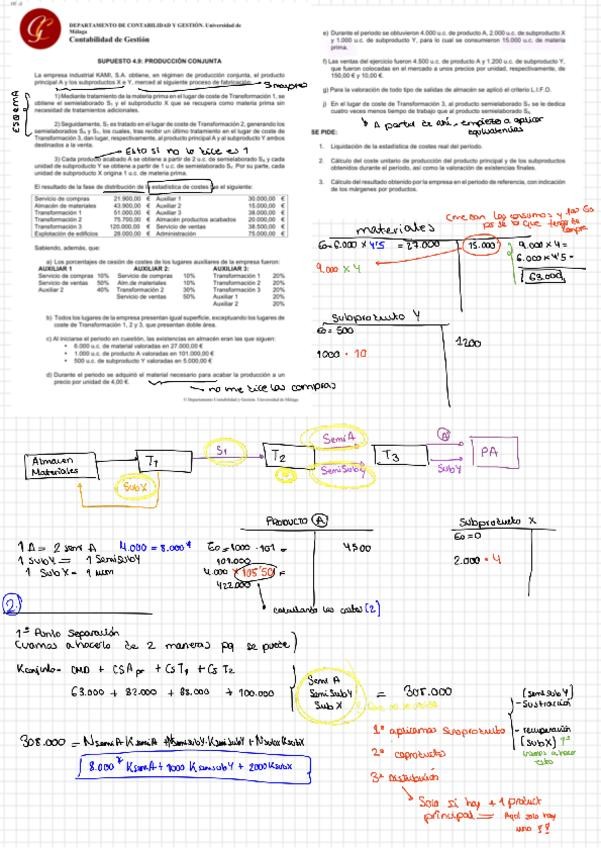 DEPARTAMENTO DE CONTABILIDAD Y GESTIÓN. Universidad de
Málaga
Contabilidad de Gestión
SUPUESTO 4.9: PRODUCCIÓN CONJUNTA
La empresa industrial KAMI, S.A. obtiene, en régimen de producción conjunta, el producto
principal A y los subproductos X e Y, merced al siguiente proceso de fabricación:
ESQUEMA
1) Mediante tratamiento de la materia prima en el lugar de coste de Transformación 1, se
obtiene el semielaborado S₁ y el subproducto X que se recupera como materia prima sin
necesidad de tratamientos adicionales.
2) Seguidamente, S₁ es tratado en el lugar de coste de Transformación 2, generando los
semielaborados
y
, los cuales, tras recibir un último tratamiento en el lugar de coste de
Transformación 3, dan lugar, respectivamente, al producto principal A y al subproducto Y ambos
destinados a la venta.
Esto si no lo dice es 1
3) Cada producto acabado A se obtiene a partir de 2 u.c. de semielaborado
y cada
unidad de subproducto Y se obtiene a partir de 1 u.c. de semielaborado
Por su parte, cada
unidad de subproducto X origina 1 u.c. de materia prima.
El resultado de la fase de distribución de la estadística de costes fue el siguiente:
Servicio de compras 21.900,00 € Auxiliar 1 30.000,00 €
Almacén de materiales 43.900,00 € Auxiliar 2 15.000,00 €
Transformación 1 51.000,00 € Auxiliar 3 38.000,00 €
Transformación 2 75.700,00 € Almacén productos acabados 20.000,00 €
Transformación 3 120.000,00 € Servicio de ventas 38.500,00 €
Explotación de edificios 28.000,00 € Administración 75.000,00 €
Sabiendo, además, que:
a) Los porcentajes de cesión de costes de los lugares auxiliares de la empresa fueron:
AUXILIAR 1 AUXILIAR 2: AUXILIAR 3:
Servicio de compras 10% Servicio de compras 10% Transformación 1 20%
Servicio de ventas 50% Alm.de materiales 10% Transformación 2 20%
Auxiliar 2 40% Transformación 2 30% Transformación 3 20%
Servicio de ventas 50% Auxiliar 1 20%
Auxiliar 2 20%
b) Todos los lugares de la empresa presentan igual superficie, exceptuando los lugares de
coste de Transformación 1, 2 y 3, que presentan doble área.
c) Al iniciarse el periodo en cuestión, las existencias en almacén eran las que siguen:
• 6.000 u.c. de material valoradas en 27.000,00 €
• 1.000 u.c. de producto A valoradas en 101.000,00 €
• 500 u.c. de subproducto Y valoradas en 5.000,00 €
d) Durante el período se adquirió el material necesario para acabar la producción a un
precio por unidad de 4,00 €.
no me dice las compras
© Departamento Contabilidad y Gestión. Universidad de Málaga
e) Durante el periodo se obtuvieron 4.000 u.c. de producto A, 2.000 u.c. de subproducto X
y 1.000 u.c. de subproducto Y, para lo cual se consumieron 15.000 u.c. de materia
prima.
f) Las ventas del ejercicio fueron 4.500 u.c. de producto A y 1.200 u.c. de subproducto Y,
que fueron colocadas en el mercado a unos precios por unidad, respectivamente, de
150,00 € y 10,00 €.
g) Para la valoración de todo tipo de salidas de almacén se aplicó el criterio L.I.F.O.
j) En el lugar de coste de Transformación 3, al producto semielaborado
se le dedica
cuatro veces menos tiempo de trabajo que al producto semielaborado
A partir de ahí, empiezo a aplicar
equivalencias
SE PIDE:
1. Liquidación de la estadística de costes real del período.
2. Cálculo del coste unitario de producción del producto principal y de los subproductos
obtenidos durante el periodo, así como la valoración de existencias finales.
3. Cálculo del resultado obtenido por la empresa en el periodo de referencia, con indicación
de los márgenes por productos.
materiales
Eo = 6.000 x 4'5 = 27.000
15.000
9.000 x 4 =
6.000 x 4'5 =
63.000
9.000 x 4
Subproducto Y
Eo = 500
1200
1000 · 10
Almacen
Materiales
T1
S1
T2
Semi A
SemiSubY
T3
A
SubY
PA
SubX
1 A = 2 semi A
4.000 = 8.000*
1 SubY = 1 SemiSubY
PRODUCTO A
Eo = 1000 · 101 =
101.000
4500
4.000 x 105'50 =
422.000
calculando los costes (2)
Subproducto X
Eo = 0
2.000 · 4
2.
1º Punto Separación
(vamos a hacerlo de 2 maneras pq se puede)
63.000 + 82.000 + 88.000 + 100.000
Semi A
SemiSubY
Sub X
= 308.000
(semi subY)
- Sustracción
- recuperación
(SubX) 1º
vamos a hacer
esto
1º aplicamos Subproducto
2º coproducto
3º distribución
Solo si hay + 1 product
principal = Aquí solo hay
uno !!
8.000* KsemiA + 1000 KsemisubY + 2000 KsubX